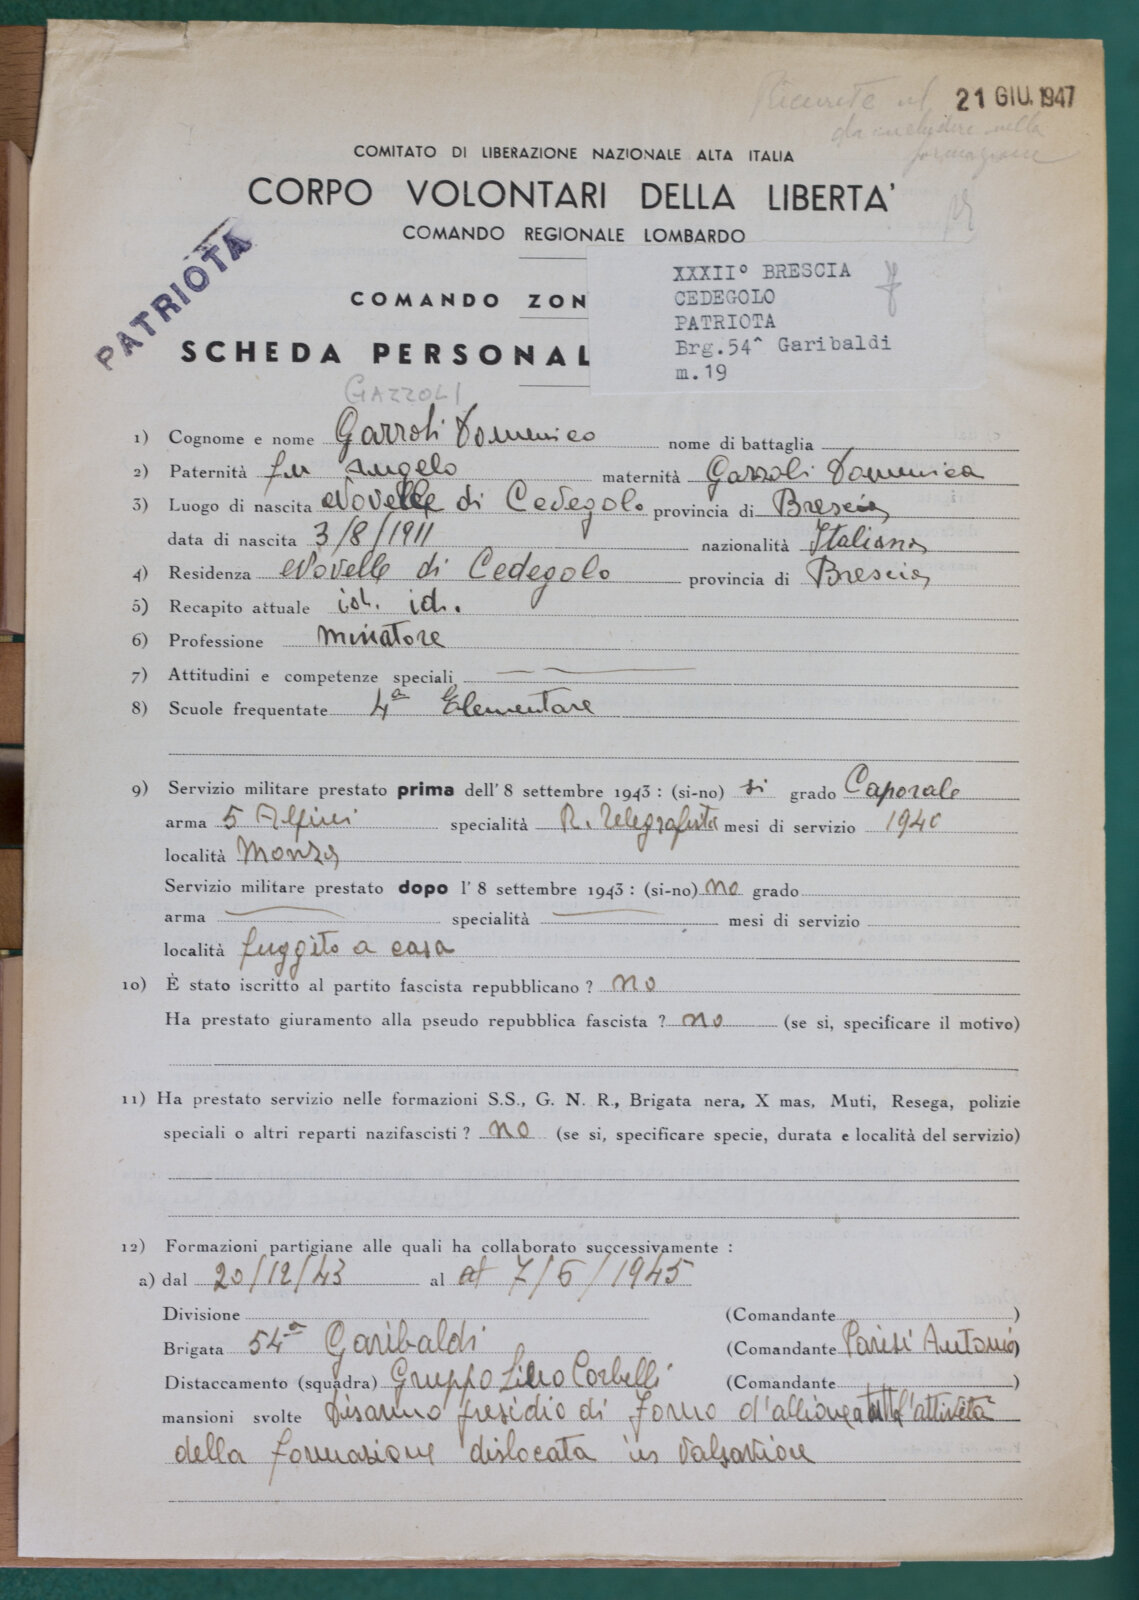 21 GIU. 1947
nella
COMITATO DI LIBERAZIONE NAZIONALE ALTA ITALIA
CORPO VOLONTARI DELLA LIBERTA'
COMANDO REGIONALE LOMBARDO
PATRIOTA
XXXII° BRESCIA
CEDEGOLO
PATRIOTA
Brg.54^ Garibaldi
m.19
COMANDO ZON
SCHEDA PERSONAL
GAZZOLI
1) Cognome e nome Gazzoli Domenico nome di battaglia
2) Paternità fu Angelo maternità Gazzoli Domenica
3) Luogo di nascita Novelle di Cedegolo provincia di Brescia
data di nascita 3/8/1911 nazionalità Italiana
4) Residenza Novelle di Cedegolo provincia di Brescia
5) Recapito attuale id. id.
6) Professione minatore
7) Attitudini e competenze speciali
8) Scuole frequentate 4a Elementare
9) Servizio militare prestato prima dell' 8 settembre 1943 : (si-no) si grado Caporale
arma 5 Alpini specialità R. Telegrafista mesi di servizio 1940
località Monza
Servizio militare prestato dopo l' 8 settembre 1943 : (si-no) no grado
arma specialità mesi di servizio
località fuggito a casa
10) È stato iscritto al partito fascista repubblicano ? no
Ha prestato giuramento alla pseudo repubblica fascista ? no (se si, specificare il motivo)
11) Ha prestato servizio nelle formazioni S.S., G. N. R., Brigata nera, X mas, Muti, Resega, polizie
speciali o altri reparti nazifascisti ? no (se si, specificare specie, durata e località del servizio)
12) Formazioni partigiane alle quali ha collaborato successivamente :
a) dal 20/12/43 al al 7/5/1945
Divisione (Comandante )
Brigata 54a Garibaldi (Comandante Parisi Antonio)
Distaccamento (squadra) Gruppo Lino Corbelli (Comandante )
mansioni svolte Disarmo presidio di Forno d'allione a tutta l'attività
della formazione dislocata in Valsaviore